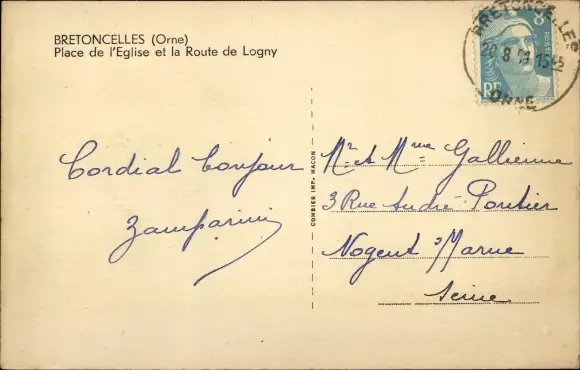 BRETONCELLES (Orne)
Place de l'Eglise et la Route de Logny
BRETONCELLES
ORNE
RF
Cordial bonjour
Zamparini
COMBIER IMP. MACON
Mr et Mme Gallienne
3 Rue André Pontier
Nogent s/Marne
Seine